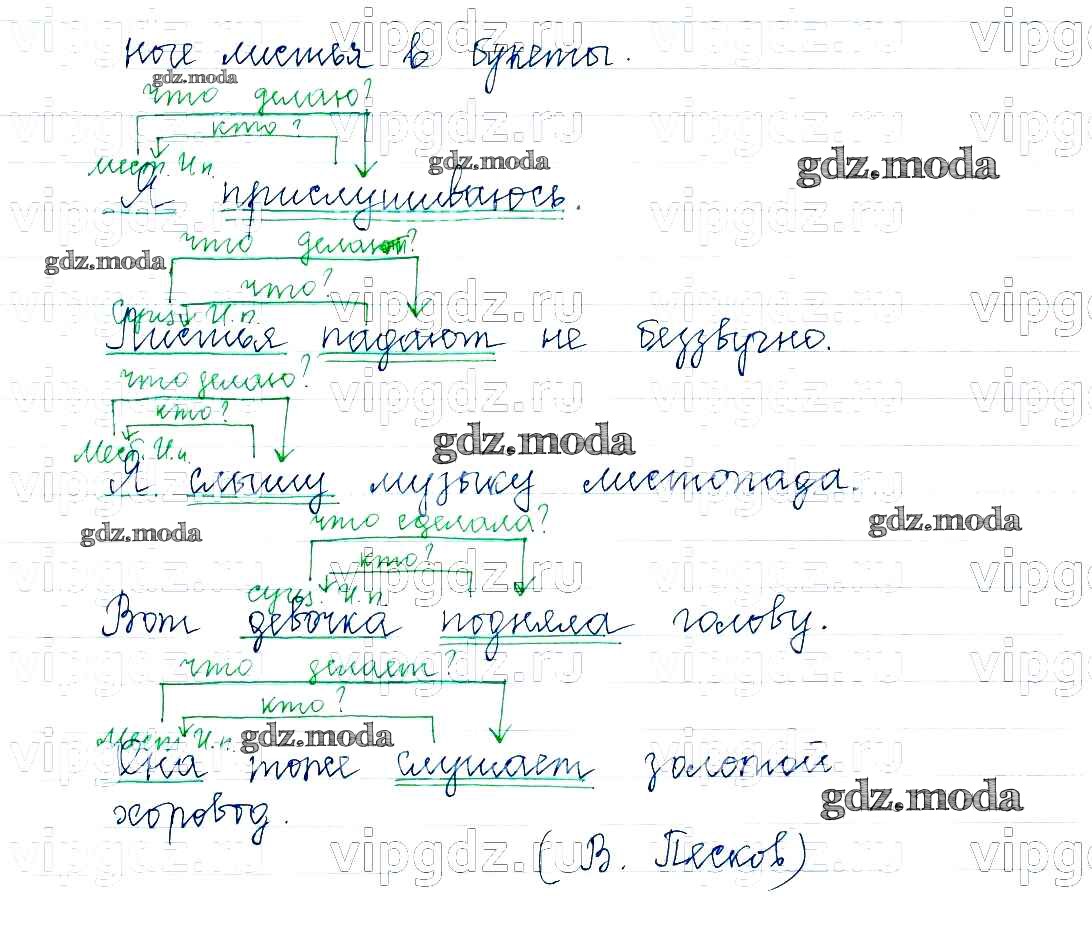 ные листья в букеты.
что делаю?
кто?
мест. И.п.
Я прислушиваюсь.
что делают?
что?
сущ. И.п.
Листья падают не беззвучно.
что делаю?
кто?
Мест. И.п.
Я слышу музыку листопада.
что сделала?
кто?
сущ. И.п.
Вот девочка подняла голову.
что делает?
кто?
Мест. И.п.
Она тоже слушает золотой
хоровод.
(В. Песков)
vipgdz.ru
gdz.moda